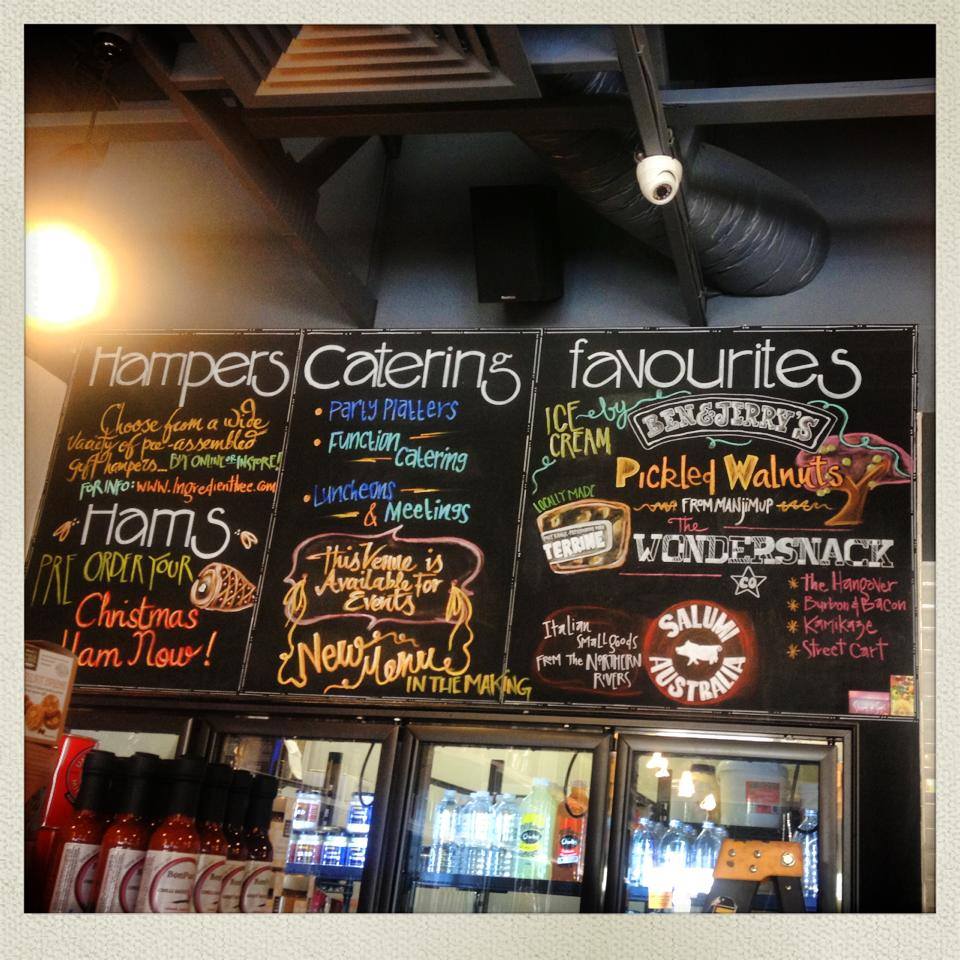 Hampers
Choose from a wide
Variety of pre-assembled
gift hampers... BUY ONLINE OR INSTORE!
FOR INFO: WWW.Ingredienthee.com
Hams
PRE ORDER YOUR
Christmas
Ham Now!
Catering
• Party Platters
• Function
Catering
• Luncheons
& Meetings
This Venue is
Available For
Events
New Menu
IN THE MAKING
favourites
ICE
CREAM
by
BEN & JERRY'S
Pickled Walnuts
FROM MANJIMUP
LOCALLY MADE
TERRINE
The
WONDERSNACK
CO
* The Hangover
* Burbon & Bacon
* Kamikaze
* Street Cart
Italian
Smallgoods
FROM THE NORTHERN
RIVERS
SALUMI
AUSTRALIA